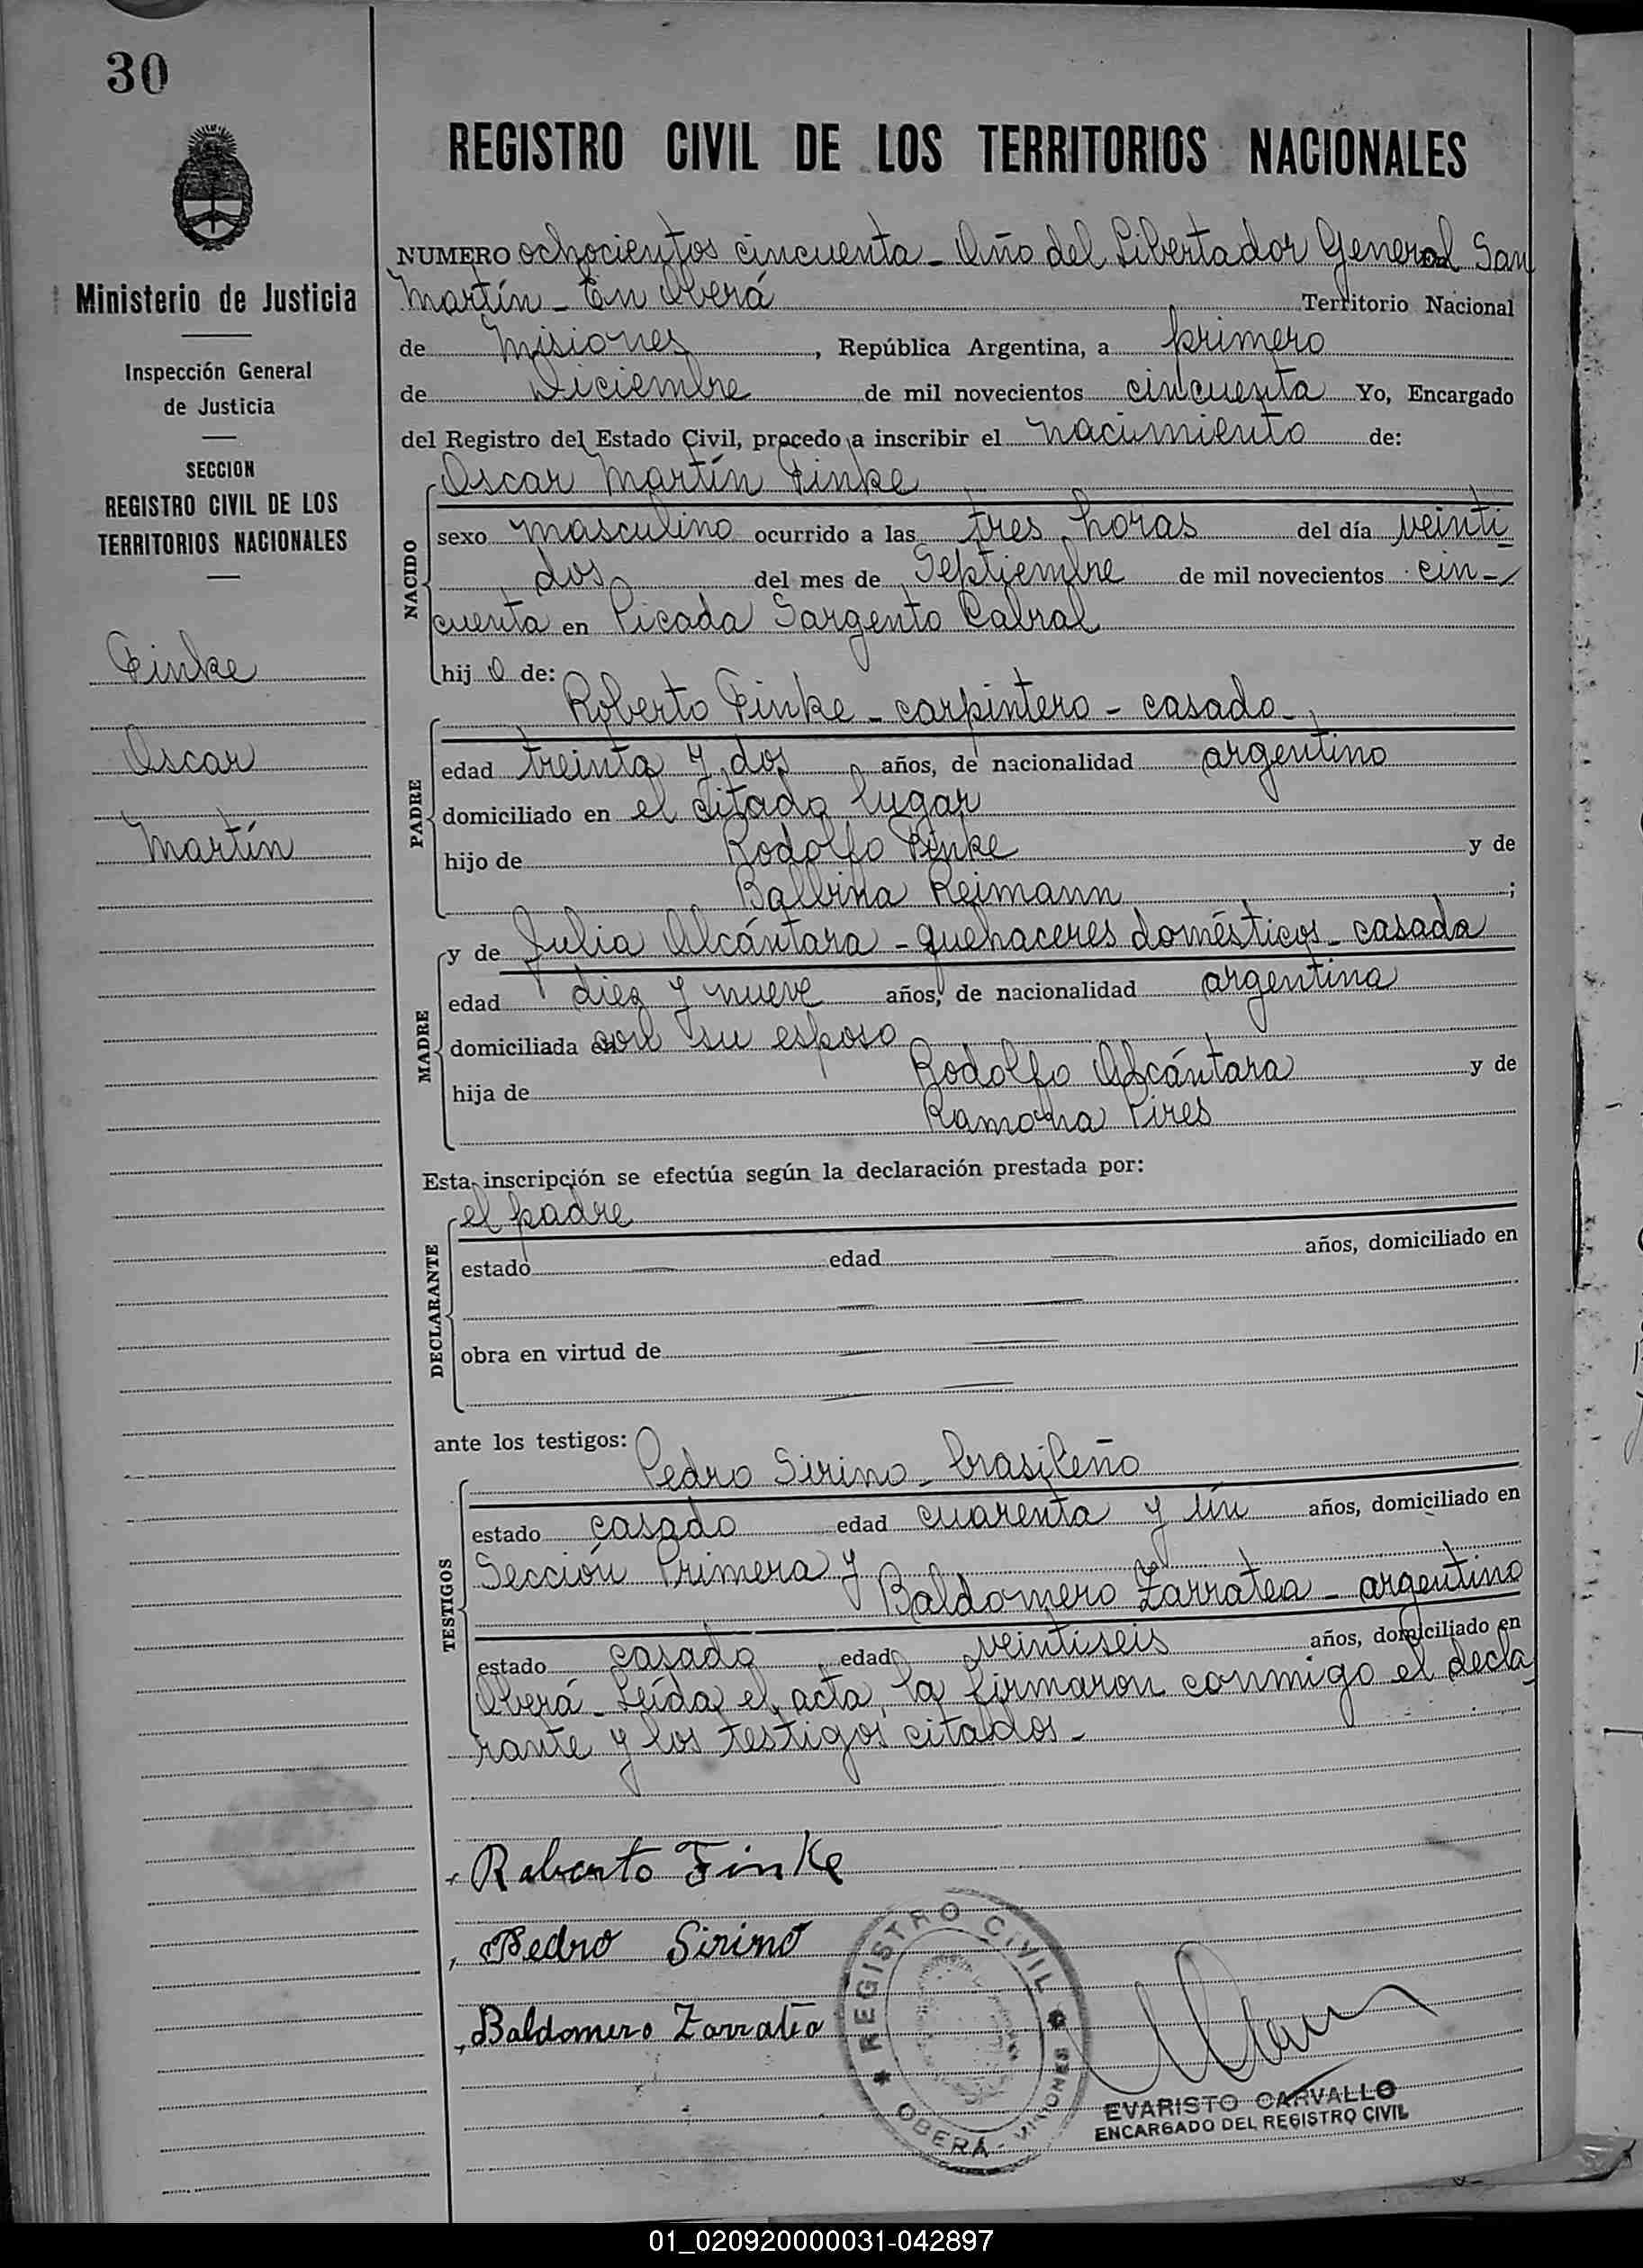 30
REGISTRO CIVIL DE LOS TERRITORIOS NACIONALES
Ministerio de Justicia
Inspección General
de Justicia
SECCION
REGISTRO CIVIL DE LOS
TERRITORIOS NACIONALES
Finke
Oscar
Martín
NUMERO ochocientos cincuenta - Año del Libertador General San
Martín - En Oberá Territorio Nacional
de Misiones, República Argentina, a primero
de Diciembre de mil novecientos cincuenta Yo, Encargado
del Registro del Estado Civil, procedo a inscribir el nacimiento de:
NACIDO
Oscar Martín Finke
sexo masculino ocurrido a las tres horas del día veinti
dos del mes de Septiembre de mil novecientos cin-
cuenta en Picada Sargento Cabral
hij o de:
PADRE
Roberto Finke - carpintero - casado -
edad treinta y dos años, de nacionalidad argentino
domiciliado en el citado lugar
hijo de Rodolfo Finke y de
Balbina Reimann ;
MADRE
y de Julia Alcántara - quehaceres domésticos - casada
edad diez y nueve años, de nacionalidad argentina
domiciliada con su esposo
hija de Rodolfo Alcántara y de
Ramona Pires
Esta inscripción se efectúa según la declaración prestada por:
DECLARANTE
el padre
estado — edad — años, domiciliado en
obra en virtud de
ante los testigos:
TESTIGOS
Pedro Sirino - brasileño
estado casado edad cuarenta y un años, domiciliado en
Sección Primera y
Baldomero Zarratea - argentino
estado casado edad veintiseis años, domiciliado en
Oberá - Leída el acta, la firmaron conmigo el decla
rante y los testigos citados -
Roberto Finke
Pedro Sirino
Baldomero Zarratea
REGISTRO CIVIL
OBERÁ - MISIONES
EVARISTO CARVALLO
ENCARGADO DEL REGISTRO CIVIL
01_020920000031-042897